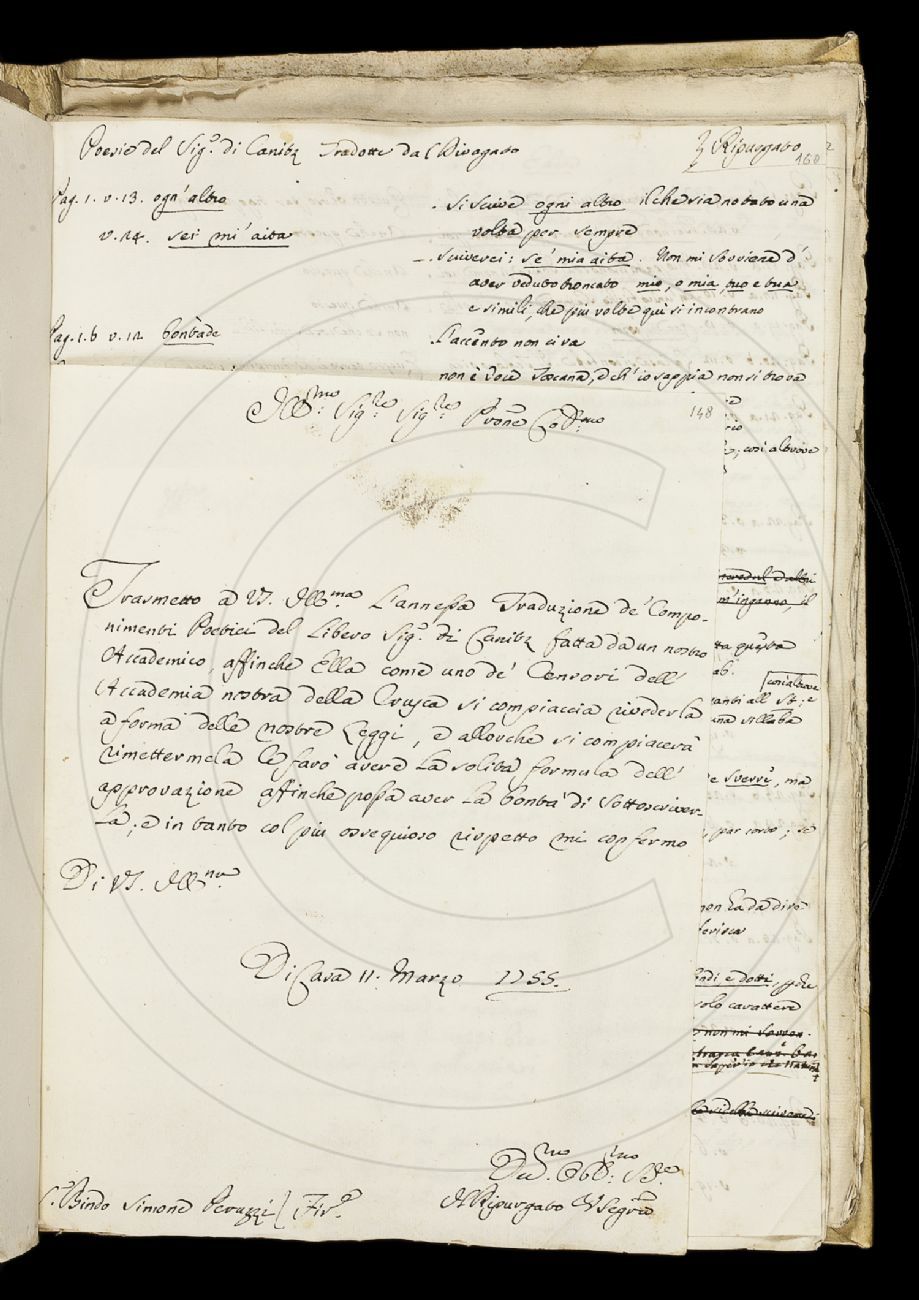 Poesie del Sig.r di Canitz Tradotte dal Divagato
Il Ripurgato
160
Pag. 1. v. 13. ogn' altro
. si scrive ogni altro il che sia notato una
volta per sempre
v. 14. sei mi' aita
scriverei: se' mia aita. Non mi sovviene d'
aver veduto troncato mio, o mia, tuo e tua
e simili, che più volte qui si incontrano
Pag. 1. b v. 12 bontade
. L'accento non ci va
non è voce Toscana, ch'io sappia non si trova
148
Ill.mo Sig.re Sig.re Prone Col.mo
Trasmetto a VS. Ill.ma L'annessa Traduzione de' Compo-
nimenti Poetici del Libero Sig.r di Canitz fatta da un nostro
Accademico, affinche Ella come uno de' Censori dell'
Accademia nostra della Crusca si compiaccia rivederla
a forma delle nostre Leggi, e allorche si compiacerà
rimettermela le farò avere La solita formula dell'
approvazione affinche possa aver La bontà di sottoscriver-
La; e in tanto col più ossequioso rispetto mi confermo
Di VS. Ill.ma
Di Casa 11. Marzo 1755.
Dev.mo Obb.mo S.re
Il Ripurgato V Segr.o
S.r Bindo Simone Peruzzi Fir.e
; così altrove
m'inganno, il
ta questa
così altrove
tanti all' St; e
una sillaba
e sverre, ma
; par corto; se
non ha da dire
ferisca
ndi e dotti, che
solo carattere
non mi sovven.